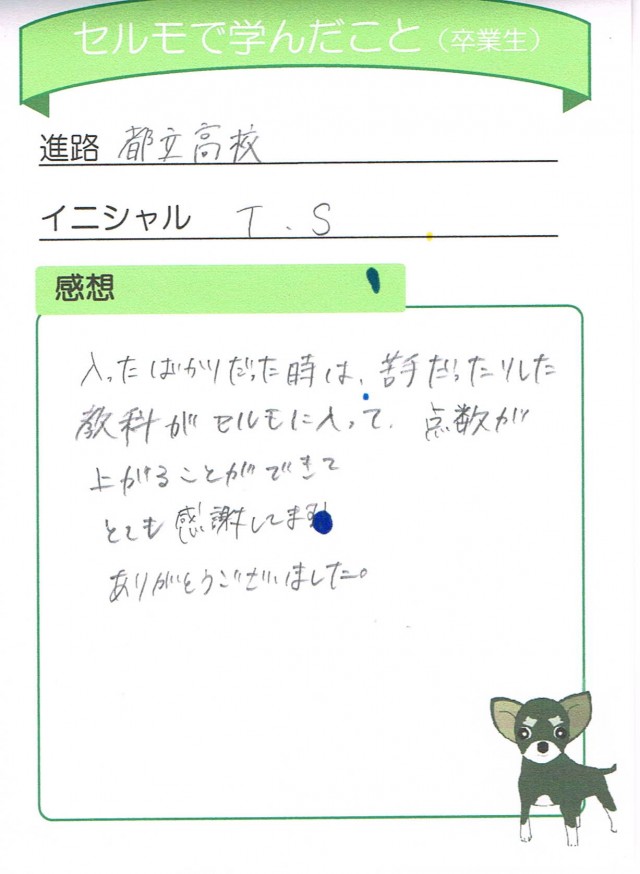 セルモで学んだこと（卒業生）
進路 都立高校
イニシャル T.S
感想
入ったばかりだった時は、苦手だったりした
教科がセルモに入って、点数が
上がることができて
とても感謝してます
ありがとうございました。